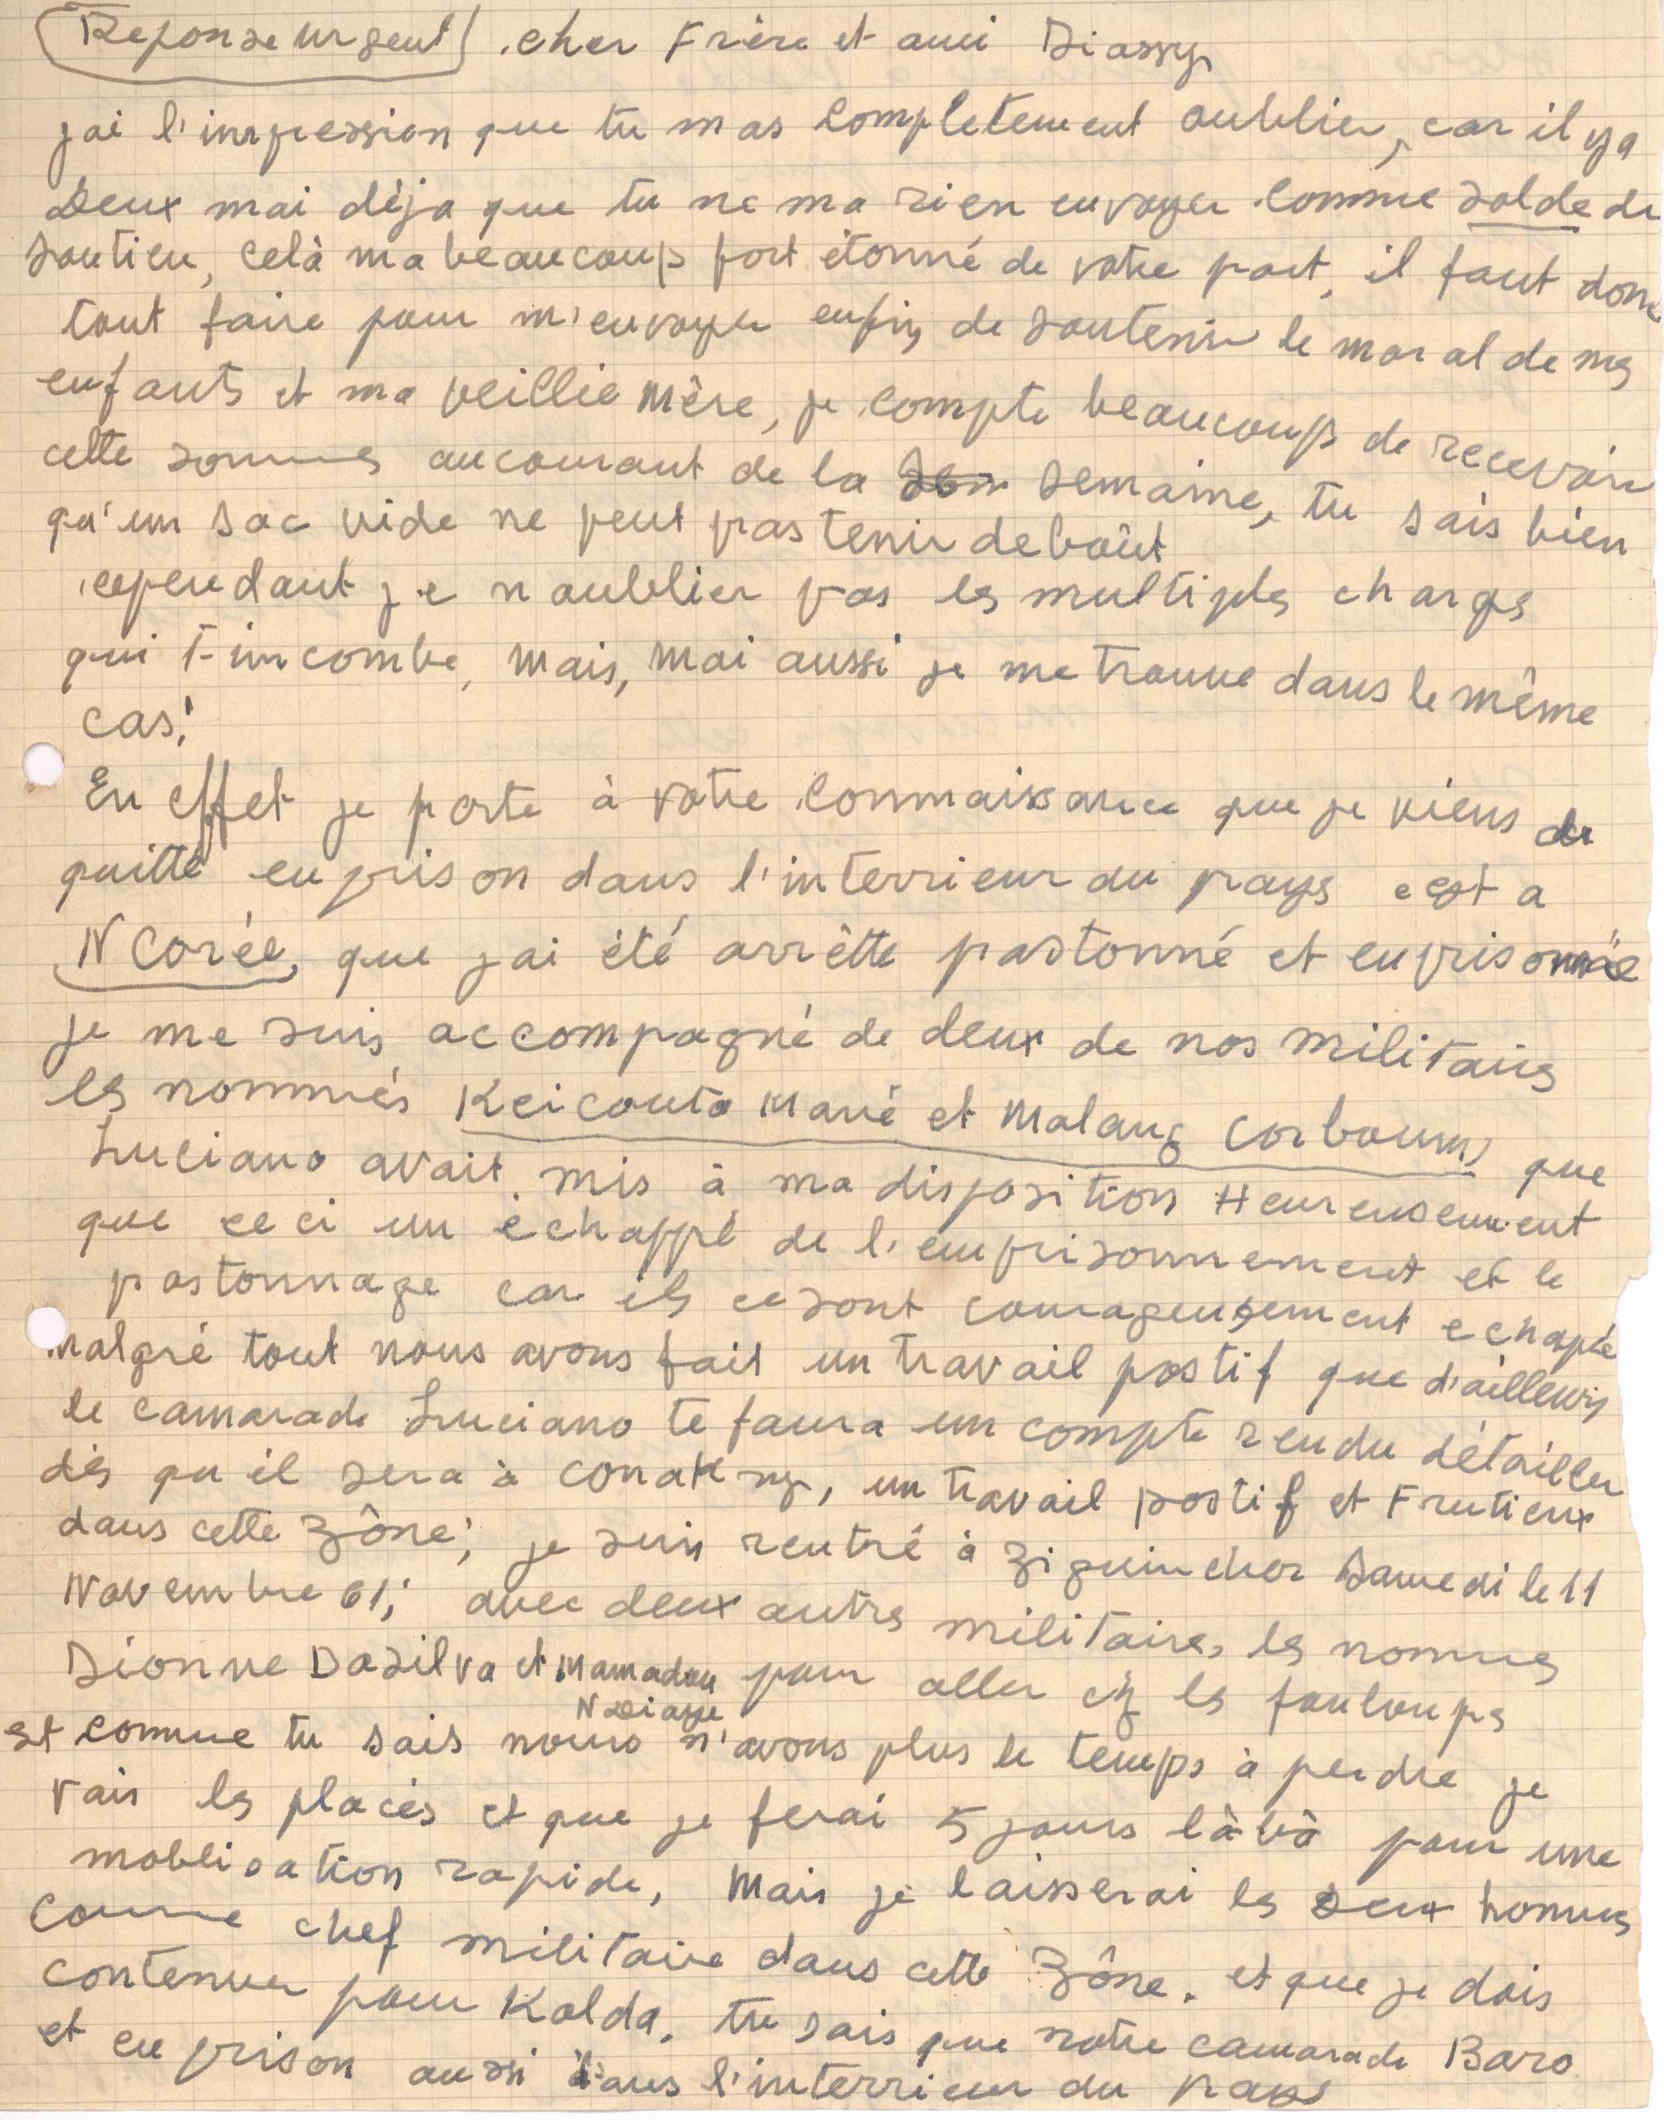 Reponse urgent . cher Frère et ami Diassy
jai l'impression que tu mas completement oublier, car il ya
Deux moi déja que tu ne ma rien envoyer comme solde de
soutien, celà ma beaucoups fort étonné de votre part, il faut donc
tout faire pour m'envoyer enfin de soutenir le moral de mes
enfants et ma veillie mère, je compte beaucoups de recevoir
cette sommes aucourant de la semaine, tu sais bien
qu'un sac vide ne peut pas tenir deboût
cependant je n oublier pas les multiples charges
qui t-incombe, mais, moi aussi je me trouve dans le même
cas!
En effet je porte à votre connaissance que je viens de
quitté en prison dans l'interrieur du pays cest a
N Corée, que jai été arrêtte pastonné et enprisonnée
je me suis accompagné de deux de nos militaires
les nommés Keicouta Mané et Malang Corboum, que
Luciano avait mis à ma disposition Heureusement
que ceci un échappé de l'enprisonnement et le
pastonnage car ils ce sont courageusement echapée
malgré tout nous avons fait un travail postif que d'ailleurs
le camarade Luciano te faura un compte rendu détailler
dés qu'il sera à conakry, un travail postif et Frutieux
dans cette zône; je suis rentré à Ziguinchor Samedi le 11
Novembre 61; avec deux autres militaires, les nommes
Dionne Dasilva et Mamadou pour aller chez les fouloups
N Diaye
et comme tu sais nous n'avons plus le temps à perdre je
vais les placés et que je ferai 5 jours là bà pour une
moblisation rapide, mais je laisserai les deux hommes
comme chef militaire dans cette zône. et que je dois
contenuer pour Kolda. tu sais que notre camarade Baro
et en prison aussi dans l'interrieur du pays